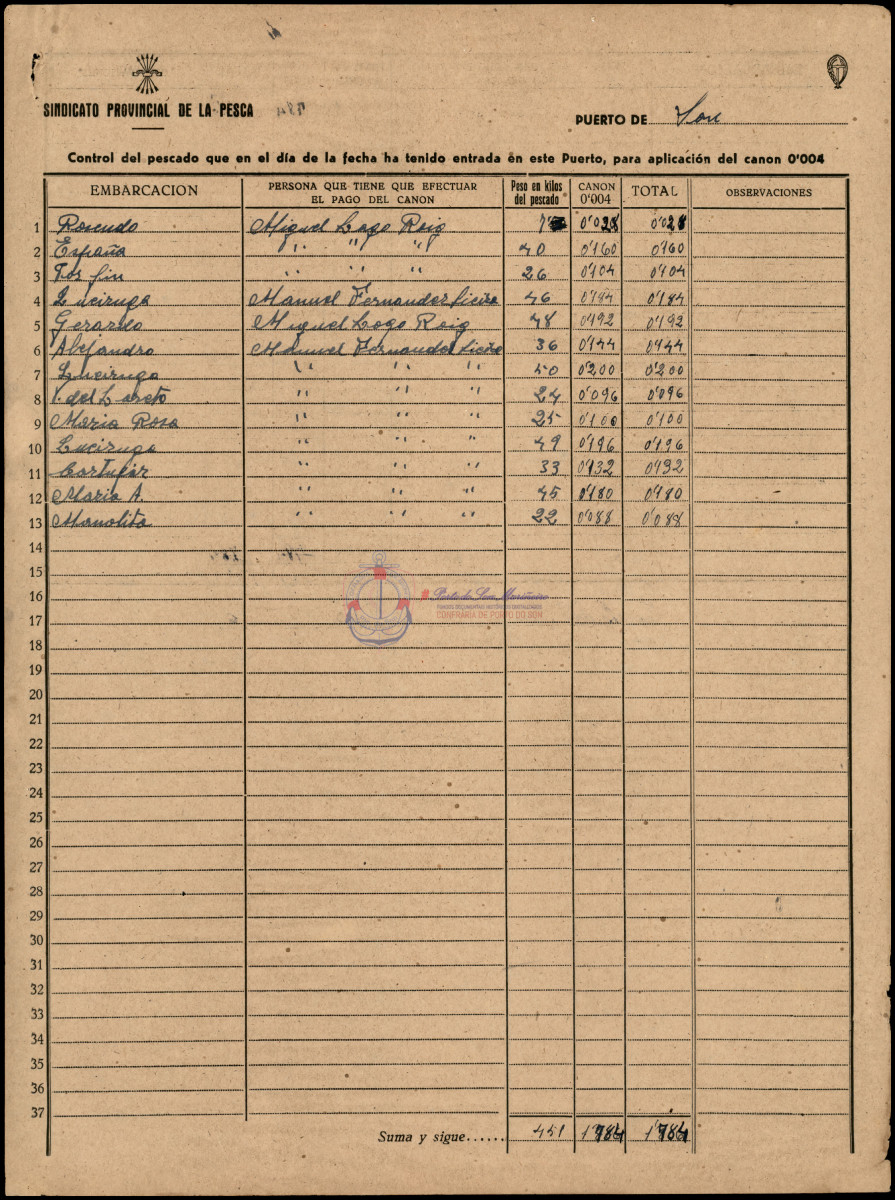 SINDICATO PROVINCIAL DE LA PESCA
PUERTO DE Son
Control del pescado que en el día de la fecha ha tenido entrada en este Puerto, para aplicación del canon 0'004
EMBARCACION PERSONA QUE TIENE QUE EFECTUAR EL PAGO DEL CANON Peso en kilos del pescado CANON 0'004 TOTAL OBSERVACIONES
1 Rosendo Miguel Lago Roig 7 0'028 0'028
2 España " " " 40 0'160 0'160
3 Por fin " " " 26 0'104 0'104
4 Luciruga Manuel Fernandez 46 0'184 0'184
5 Gerardo Miguel Lago Roig 48 0'192 0'192
6 Alejandro Manuel Fernandez 36 0'144 0'144
7 Luciruga " " " 50 0'200 0'200
8 V. del Loreto " " " 24 0'096 0'096
9 Maria Rosa " " " 25 0'100 0'100
10 Luciruga " " " 49 0'196 0'196
11 " " " 33 0'132 0'132
12 Maria A. " " " 45 0'180 0'180
13 Manolita " " " 22 0'088 0'088
14
15
16
17
18
19
20
21
22
23
24
25
26
27
28
29
30
31
32
33
34
35
36
37
Suma y sigue...... 451 1'784 1'784
Porto do Son Mariñeiro
FONDOS DOCUMENTAIS HISTÓRICOS DIXITALIZADOS
CONFRARÍA DE PORTO DO SON